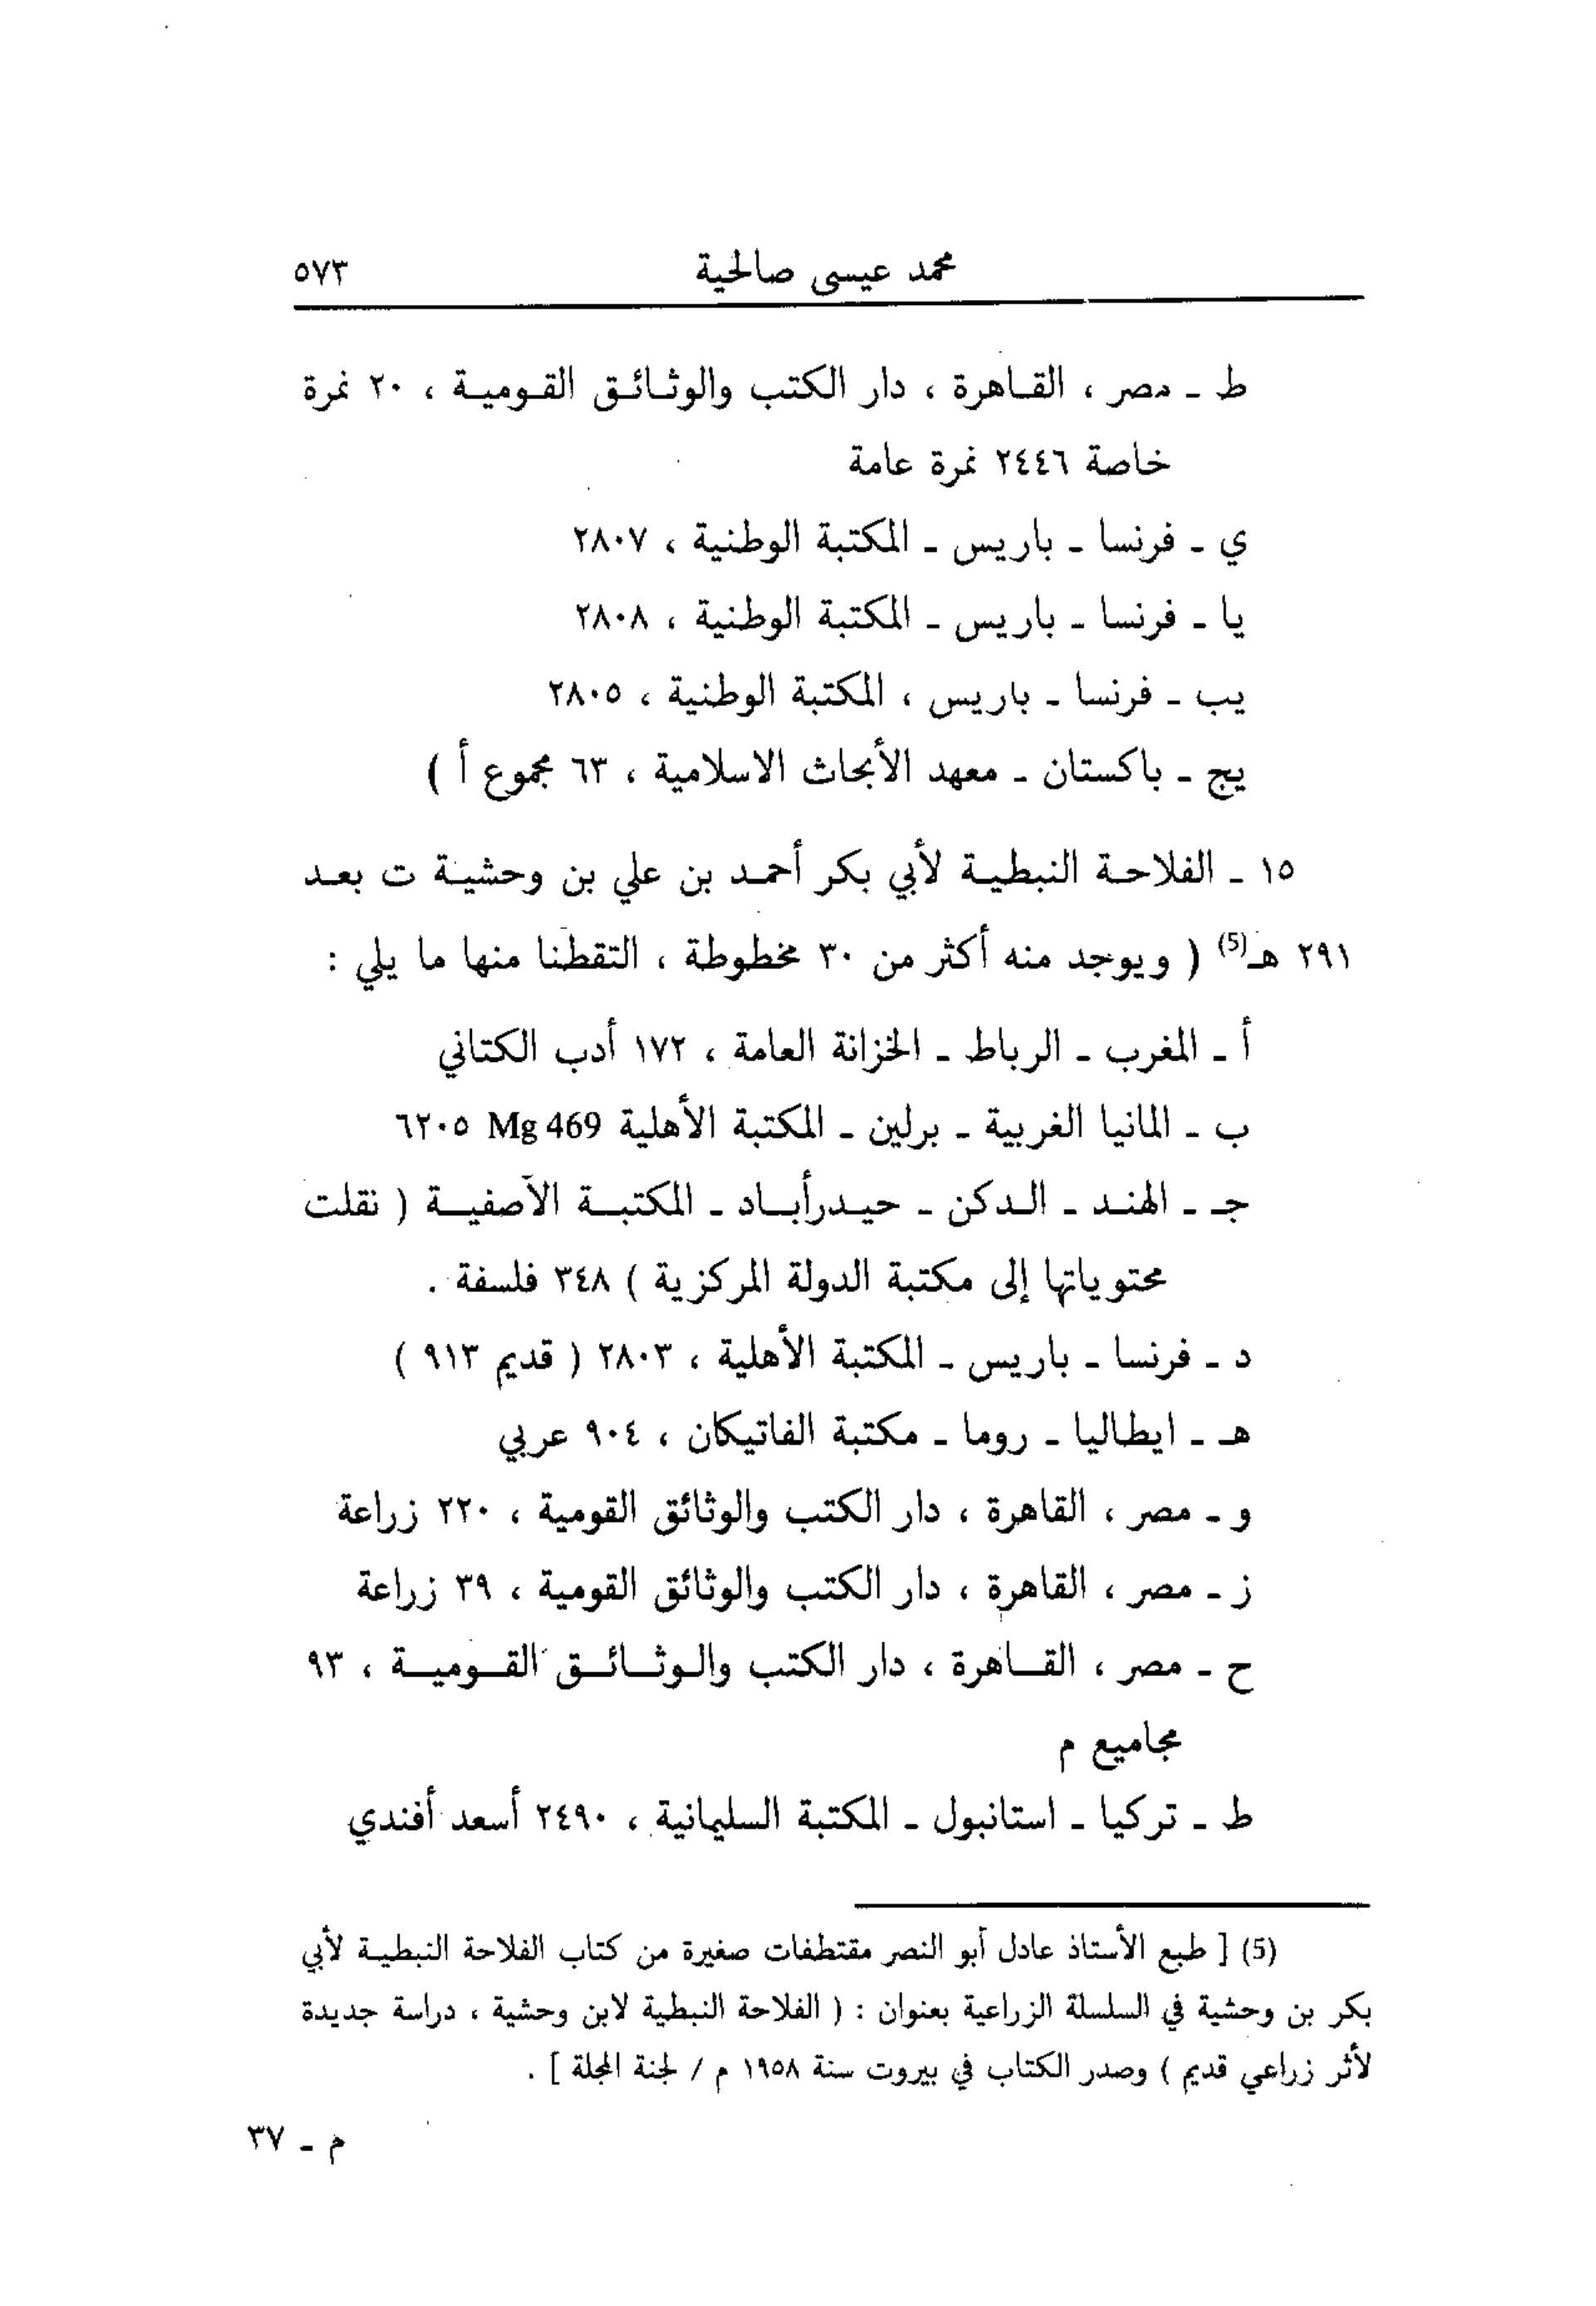 محمد عيسى صالحية ٥٧٣
ط ـ مصر ، القاهرة ، دار الكتب والوثائق القومية ، ٢٠ نمرة
خاصة ٢٤٤٦ نمرة عامة
ي ـ فرنسا ـ باريس ـ المكتبة الوطنية ، ٢٨٠٧
يا ـ فرنسا ـ باريس ـ المكتبة الوطنية ، ٢٨٠٨
يب ـ فرنسا ـ باريس ، المكتبة الوطنية ، ٢٨٠٥
يج ـ باكستان ـ معهد الأبحاث الاسلامية ، ٦٣ مجموع أ )
١٥ ـ الفلاحة النبطية لأبي بكر أحمد بن علي بن وحشية ت بعد
٢٩١ هـ(5) ( ويوجد منه أكثر من ٣٠ مخطوطة ، التقطنا منها ما يلي :
أ ـ المغرب ـ الرباط ـ الخزانة العامة ، ١٧٢ أدب الكتاني
ب ـ المانيا الغربية ـ برلين ـ المكتبة الأهلية Mg 469 ٦٢٠٥
جـ ـ الهند ـ الدكن ـ حيدرأباد ـ المكتبة الآصفية ( نقلت
محتوياتها إلى مكتبة الدولة المركزية ) ٣٤٨ فلسفة .
د ـ فرنسا ـ باريس ـ المكتبة الأهلية ، ٢٨٠٣ ( قديم ٩١٣ )
هـ ـ ايطاليا ـ روما ـ مكتبة الفاتيكان ، ٩٠٤ عربي
و ـ مصر ، القاهرة ، دار الكتب والوثائق القومية ، ٢٢٠ زراعة
ز ـ مصر ، القاهرة ، دار الكتب والوثائق القومية ، ٣٩ زراعة
ح ـ مصر ، القاهرة ، دار الكتب والوثائق القومية ، ٩٣
مجاميع م
ط ـ تركيا ـ استانبول ـ المكتبة السليمانية ، ٢٤٩٠ أسعد أفندي
(5) [ طبع الأستاذ عادل أبو النصر مقتطفات صغيرة من كتاب الفلاحة النبطية لأبي
بكر بن وحشية في السلسلة الزراعية بعنوان : ( الفلاحة النبطية لابن وحشية ، دراسة جديدة
لأثر زراعي قديم ) وصدر الكتاب في بيروت سنة ١٩٥٨ م / لجنة المجلة ] .
م ـ ٣٧